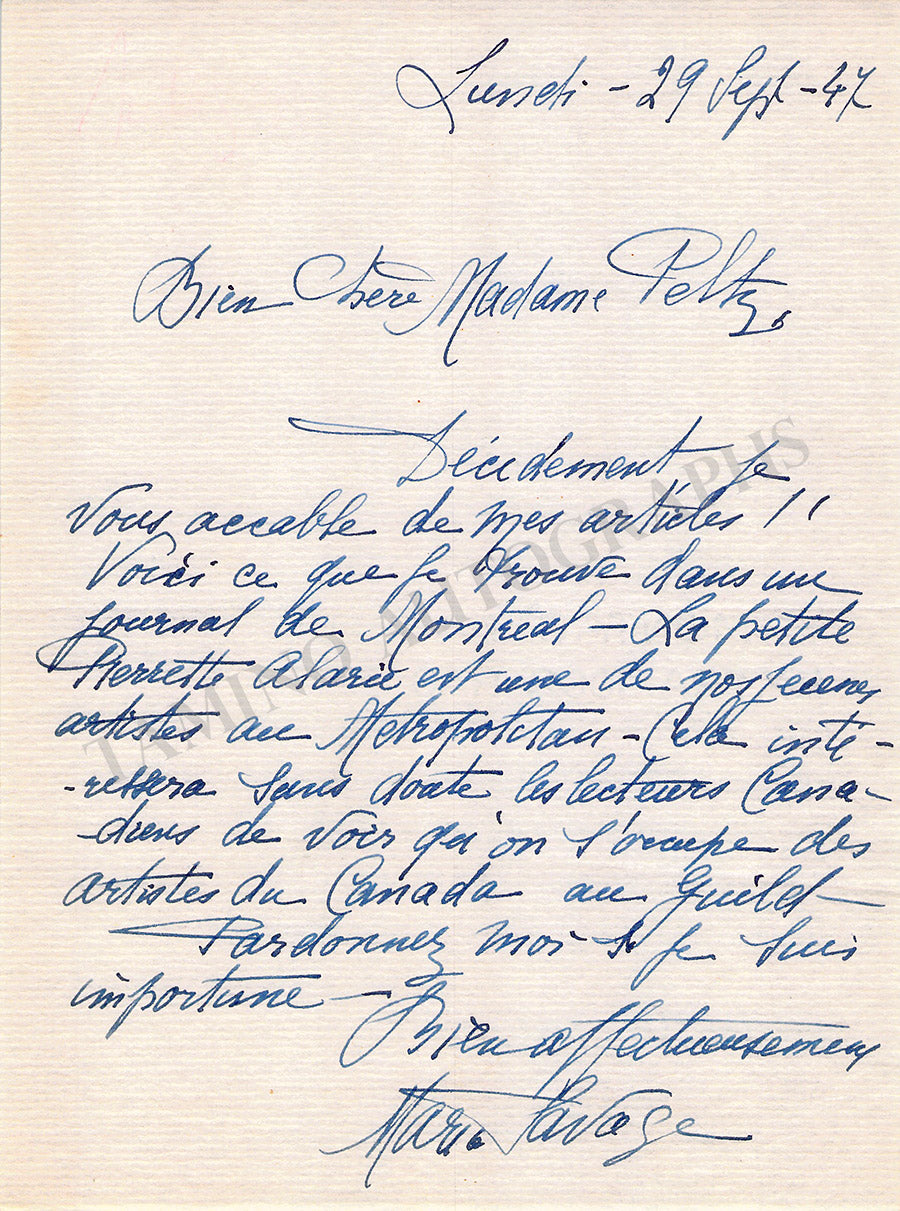 Lundi - 29 Sept - 47
Bien Chère Madame Peltz,
Décidément je
vous accable de mes articles !!
Voici ce que je trouve dans un
journal de Montreal - La petite
Pierrette Alarie est une de nos jeunes
artistes au Metropolitan - Cela inté-
-ressera sans doute les lecteurs Cana-
-diens de voir qu'on s'occupe des
artistes du Canada au Guild -
Pardonnez moi si je suis
importune -
Bien affectueusement
Marie Savage
TAMINO AUTOGRAPHS